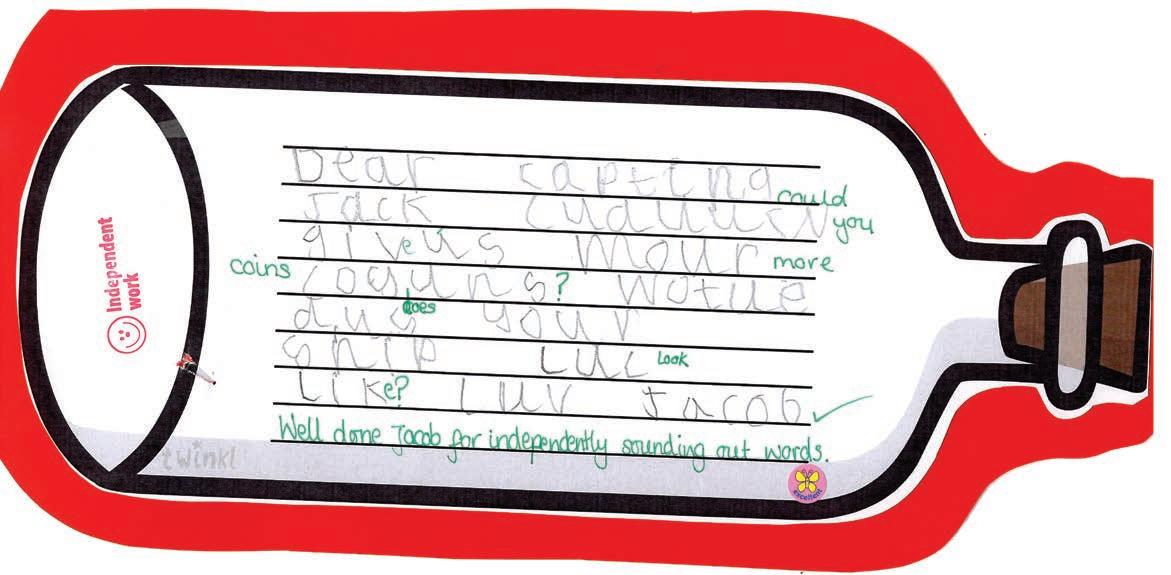 Dear captina
could
Jack
you
giveus mour more
coins coguns? wotue
dus does your
ship LUC Look
Like? luv Jacob
Well done Jacob for independently sounding out words.
Independent
work
twinkl
excellent